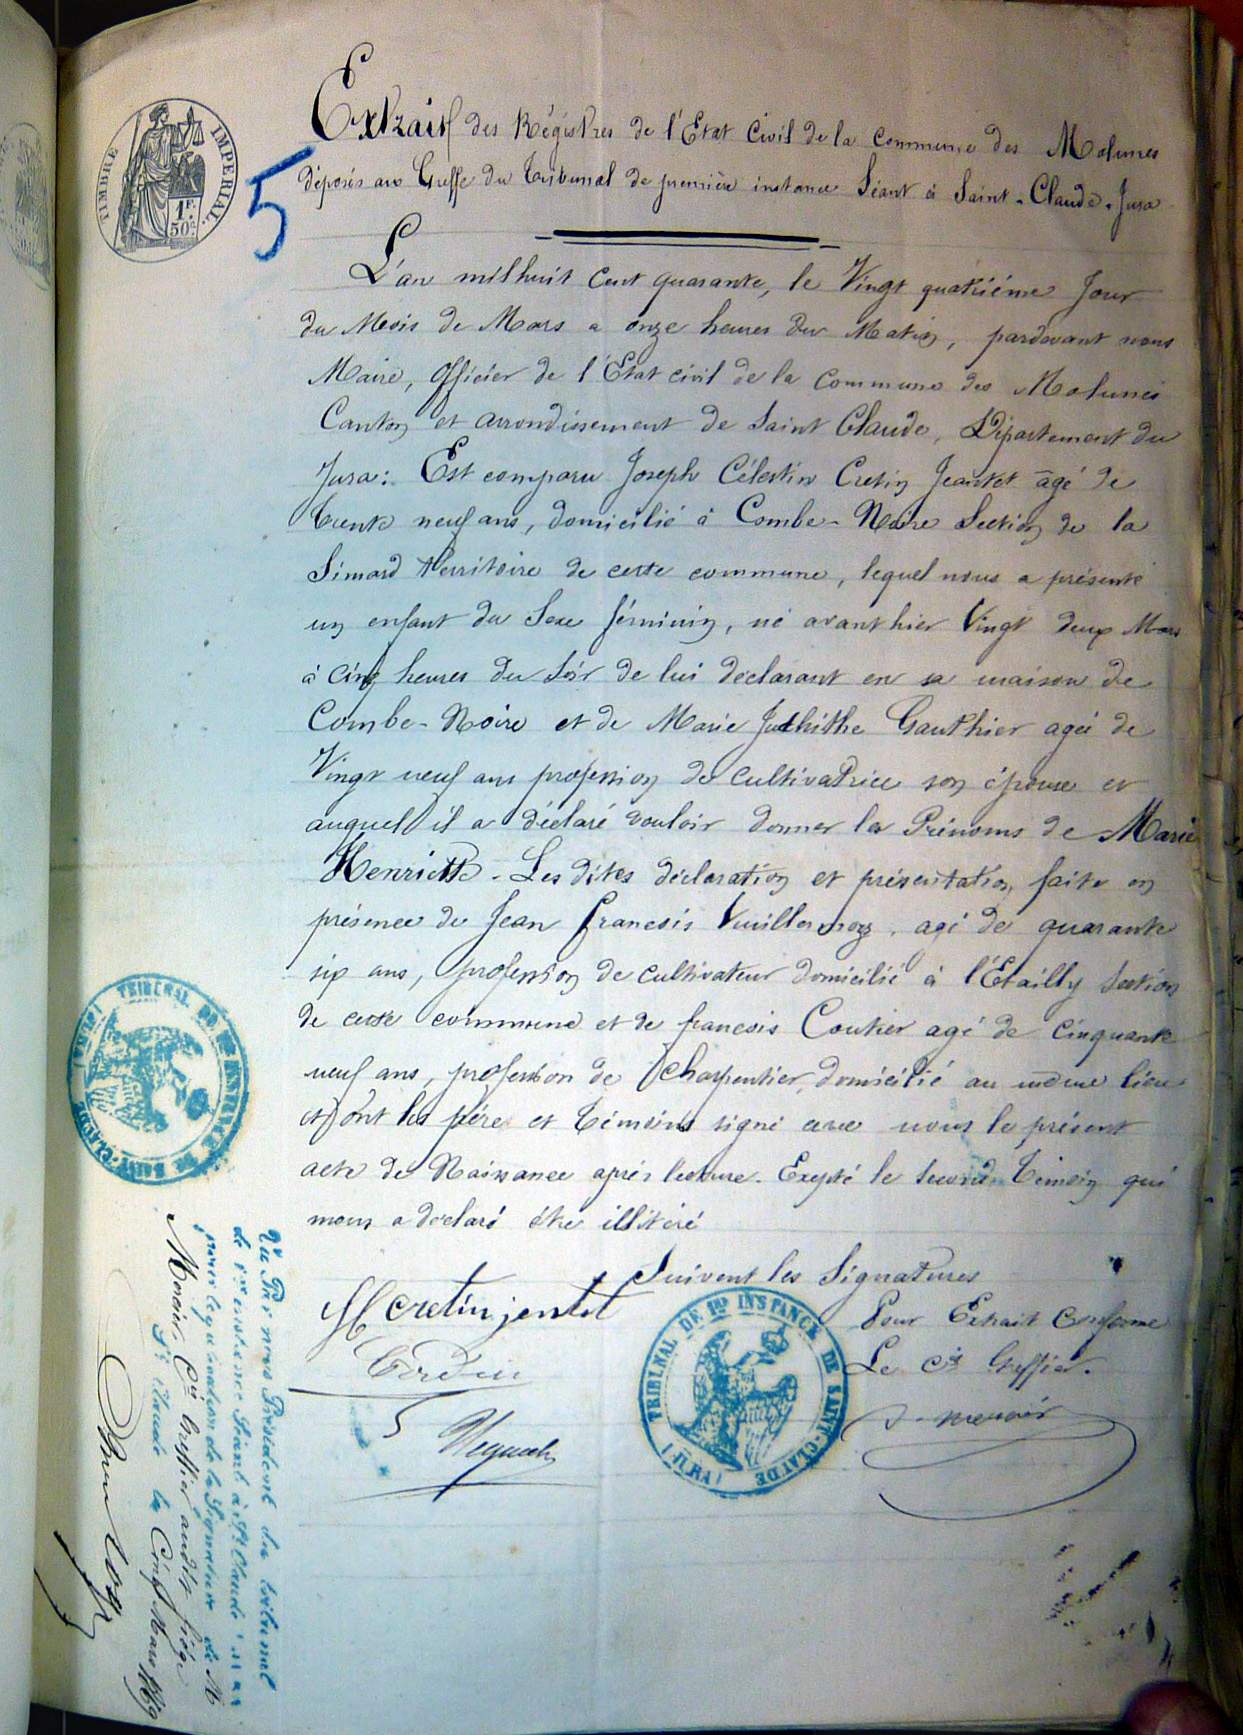 TIMBRE IMPERIAL.
1F.
50c.
5
Extrait des Régistres de l'Etat Civil de la Commune des Molunes
déposés au Greffe du Tribunal de première instance Séant à Saint-Claude-Jura
L'an mil huit cent quarante, le Vingt quatrième Jour
du Mois de Mars a onze heures du Matin, pardevant nous
Maire, Officier de l'Etat civil de la Commune des Molunes
Canton et arrondissement de Saint Claude, Département du
Jura: Est comparu Joseph Célestin Cretin Jeantet âgé de
trente neuf ans, domicilié à Combe-Noire Section de la
Simard térritoire de cette commune, lequel nous a présenté
un enfant du Sexe féminin, né avant hier Vingt deux Mars
à cinq heures du soir de lui déclarant en sa maison de
Combe-Noire et de Marie Gauthier agée de
Vingt neuf ans profession de cultivatrice son épouse et
auquel il a déclaré vouloir donner les Prénoms de Marie
Henriette - Les dites déclaration et présentation faite en
présence de Jean francois Vuillermoz, agé de quarante
six ans, profession de cultivateur domicilié à l'Etailly Section
de cette commune et de francois Coutier agé de cinquante
neuf ans, profession de Charpentier domicilié au même lieu
et ont les père et témoins signé avec nous le présent
acte de Naissance après lecture. Exepté le second Témoin qui
nous a déclaré être illitéré
Suivent les Signatures
Pour Extrait Conforme
Le cis Greffier.
cretin jentet
TRIBUNAL DE 1re INSTANCE DE SAINT-CLAUDE (JURA)
TRIBUNAL DE 1re INSTANCE DE SAINT-CLAUDE (JURA)
Vu Par nous Président du tribunal
de 1re instance Séant à St Claude
pour légalisation de la Signature de M
Morain, Cis Greffier audit siége
St Claude le Cinq Mars 1869